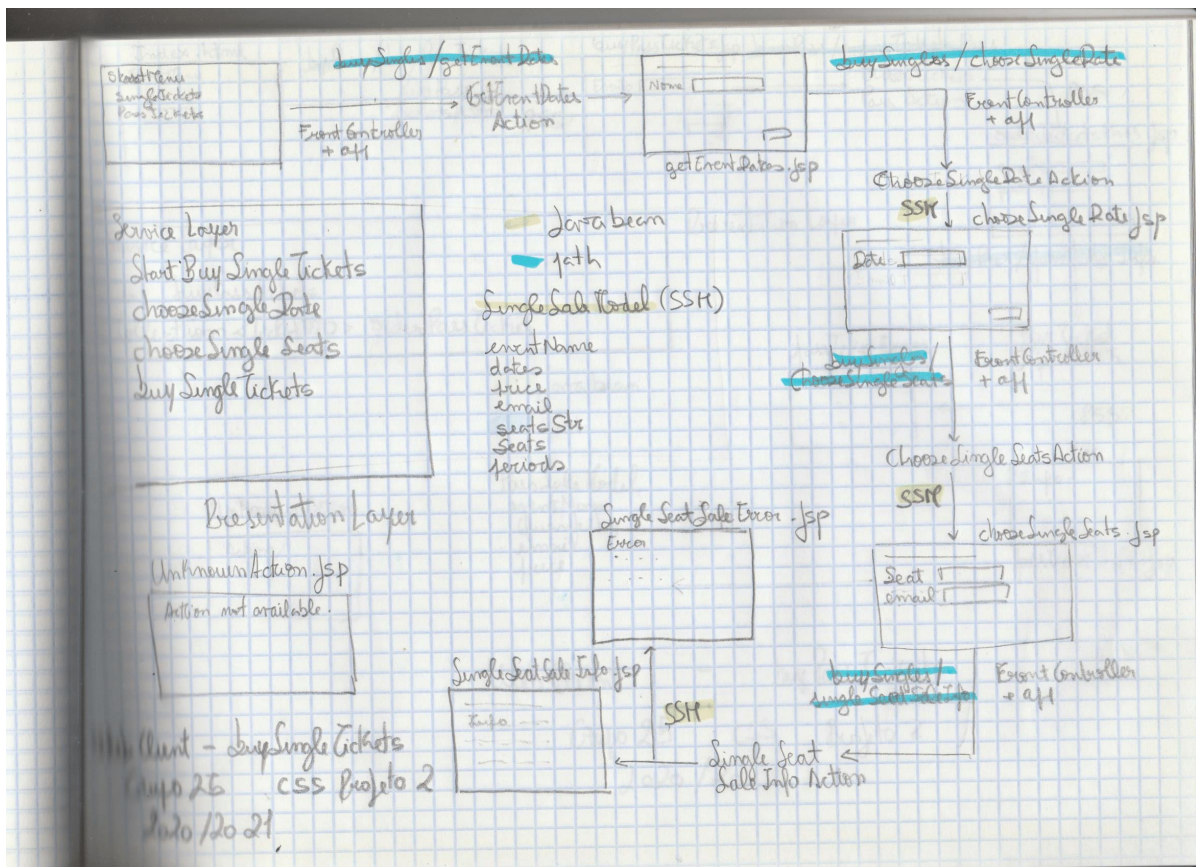 Start Menu
Single Tickets
Pass Tickets
buySingles/getEventDates
FrontController
+ app
GetEventDates
Action
Nome
getEventDates.jsp
buySingles/chooseSingleDate
FrontController
+ app
ChooseSingleDateAction
SSM
chooseSingleDate.jsp
Date
Service Layer
Start Buy Single Tickets
chooseSingleDate
chooseSingle Seats
buySingleTickets
Javabean
path
SingleSaleModel (SSM)
eventName
dates
price
email
seatsStr
Seats
periods
buySingles/
ChooseSingleSeats
FrontController
+ app
ChooseSingleSeatsAction
SSM
chooseSingleSeats.jsp
Seat
email
Presentation Layer
UnknownAction.jsp
Action not available.
SingleSeatSaleError.jsp
Error
SingleSeatSaleInfo.jsp
Info
SSM
buySingles/
singleSeatSaleInfo
FrontController
+ app
Single Seat
Sale Info Action
Client - buySingleTickets
Grupo 25 CSS Projeto 2
2020/2021